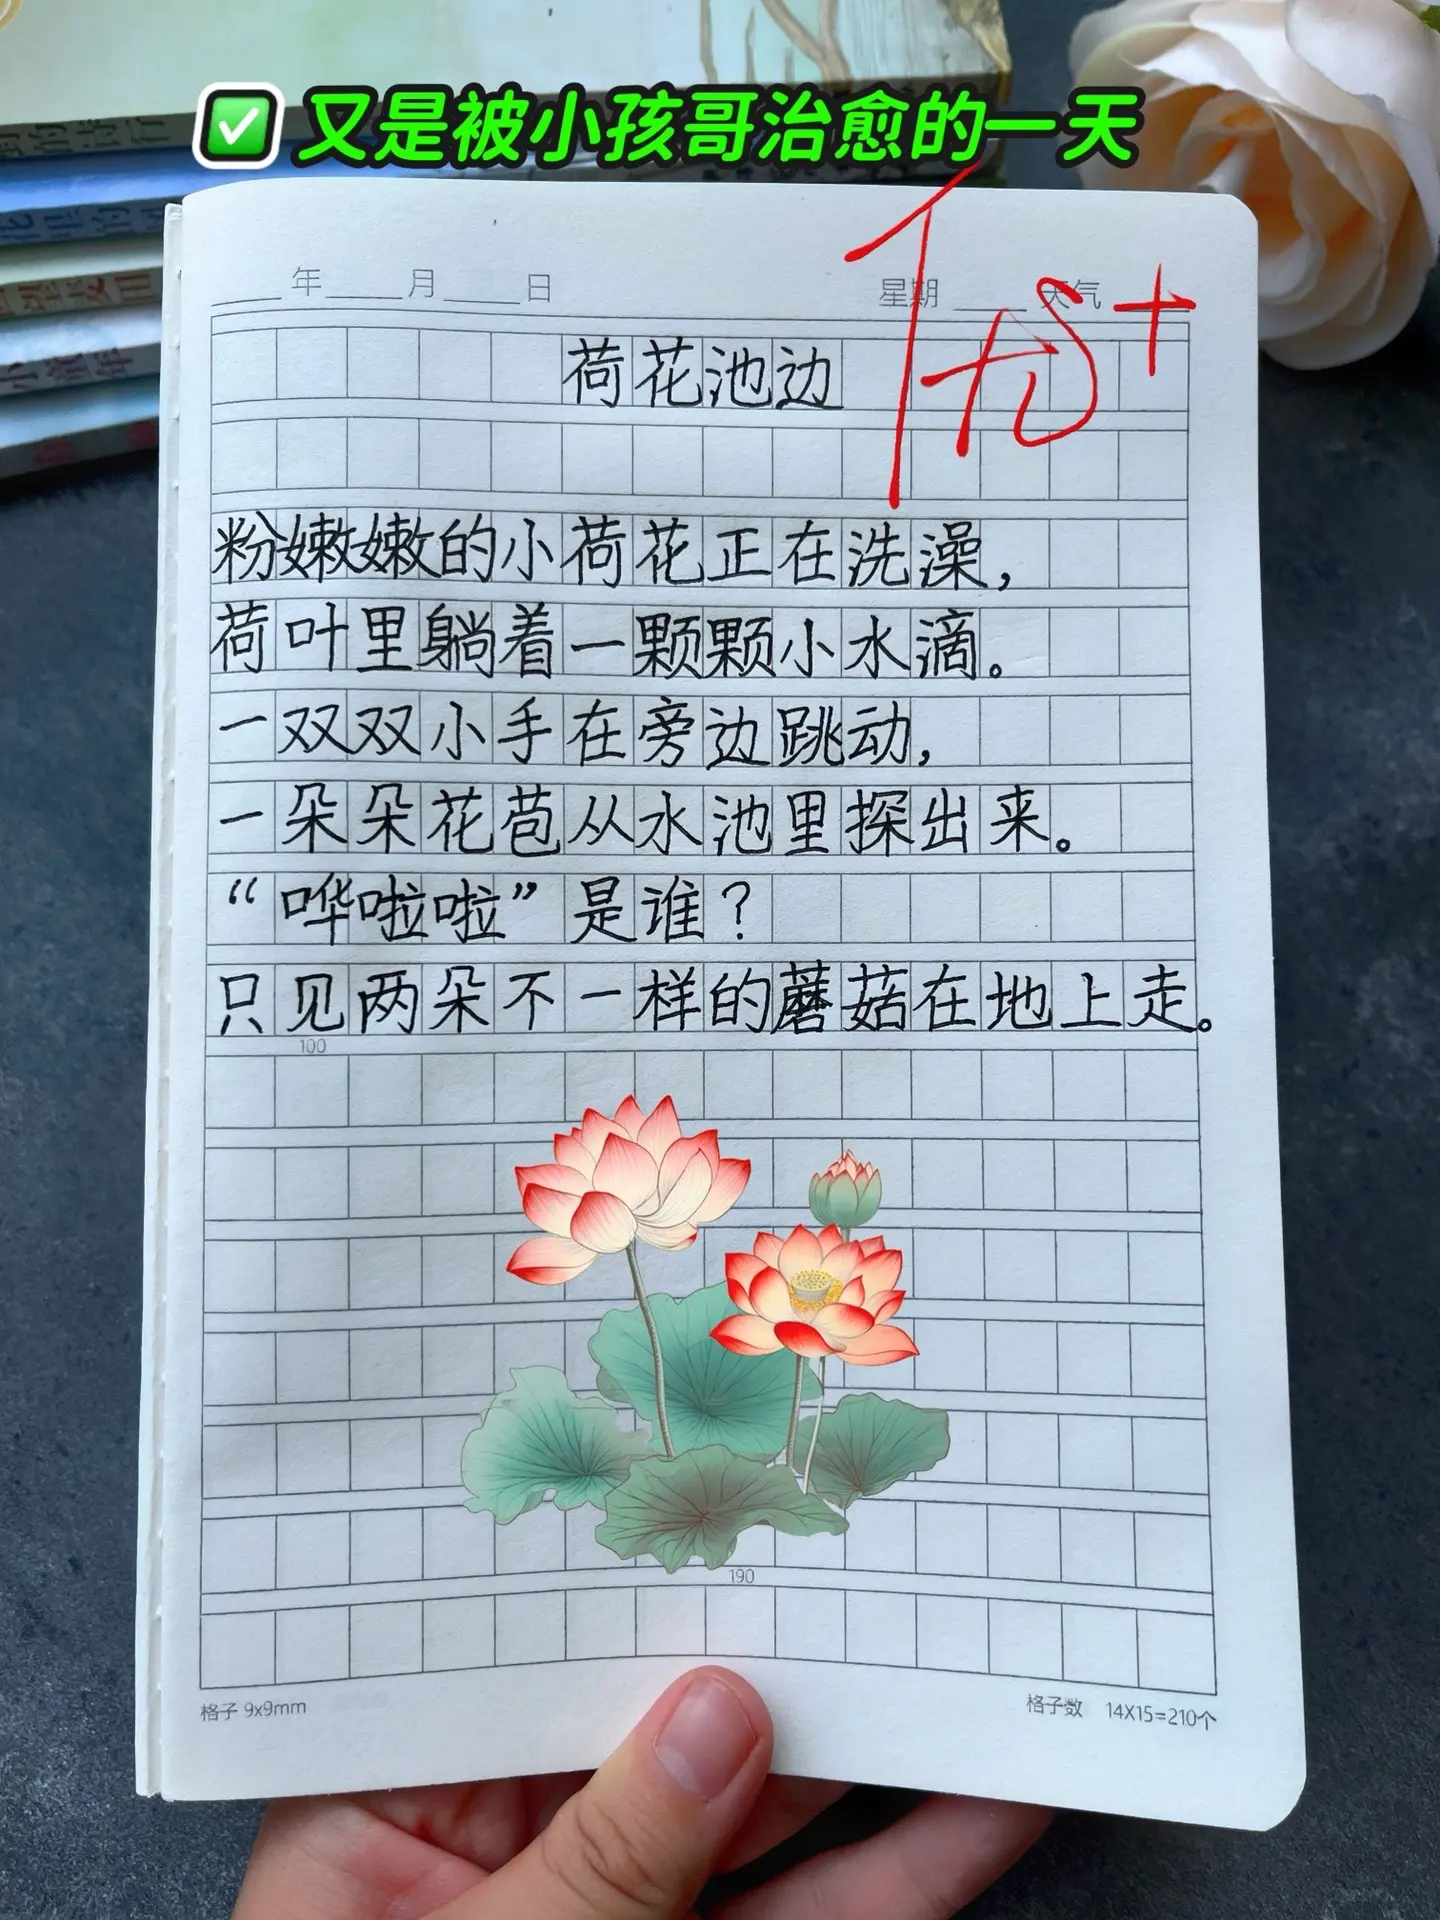 ✅ 又是被小孩哥治愈的一天
年 月 日 星期 天气
优+
荷花池边
粉嫩嫩的小荷花正在洗澡，
荷叶里躺着一颗颗小水滴。
一双双小手在旁边跳动，
一朵朵花苞从水池里探出来。
“哗啦啦”是谁？
只见两朵不一样的蘑菇在地上走。
100
190
格子 9x9mm 格子数 14X15=210个